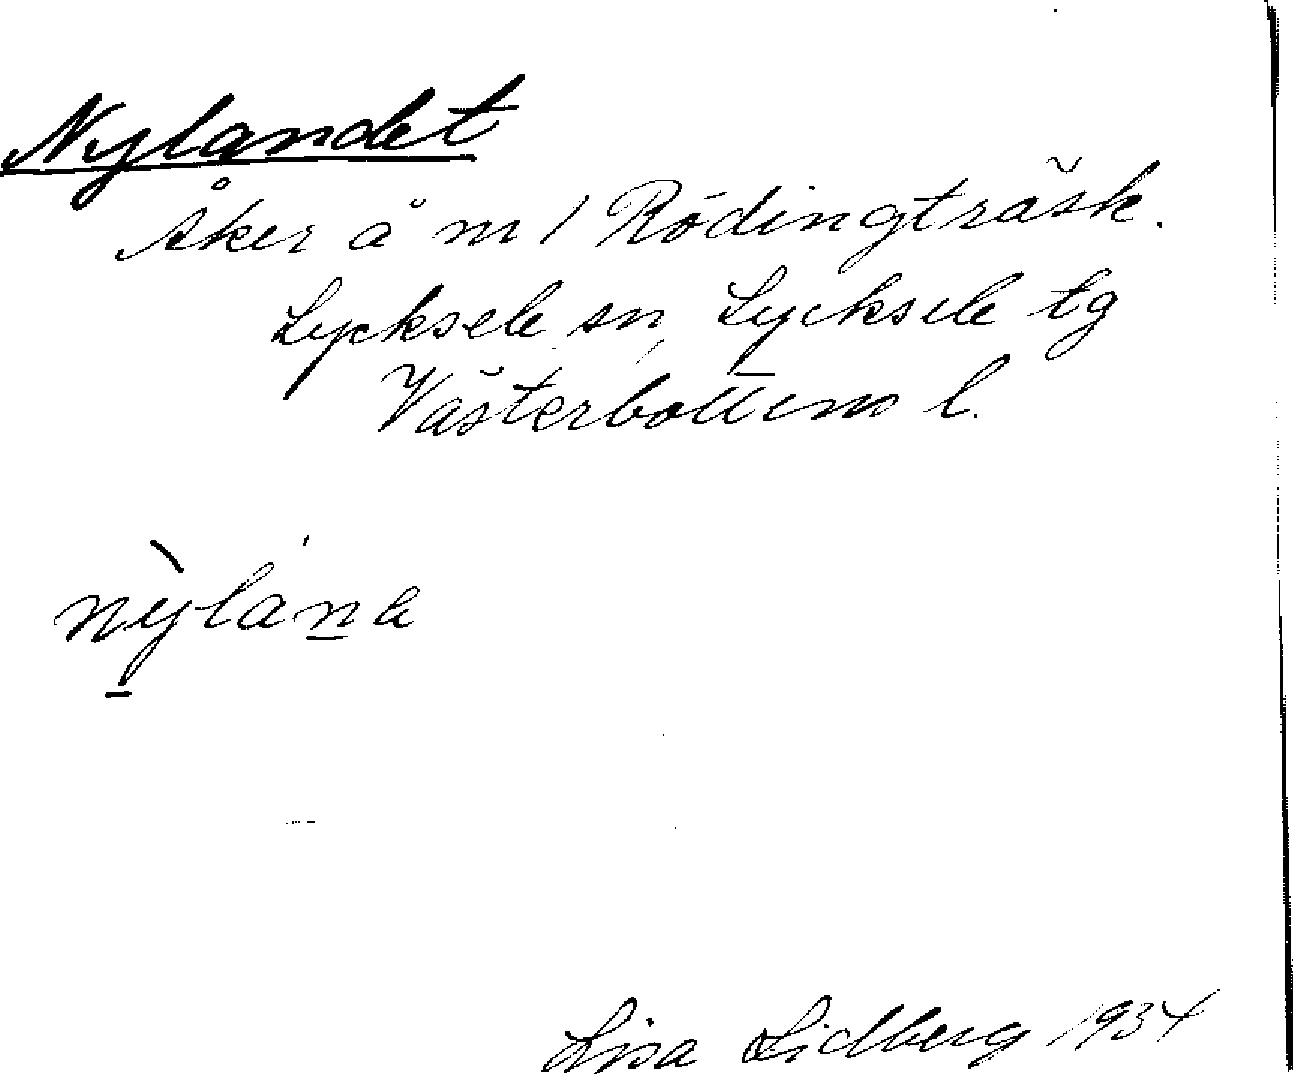 Nylandet
Åker å nr 1 Rödingträsk.
Lycksele sn, Lycksele tg
Västerbottens l.
nỳlána
Lisa Lidberg 1934